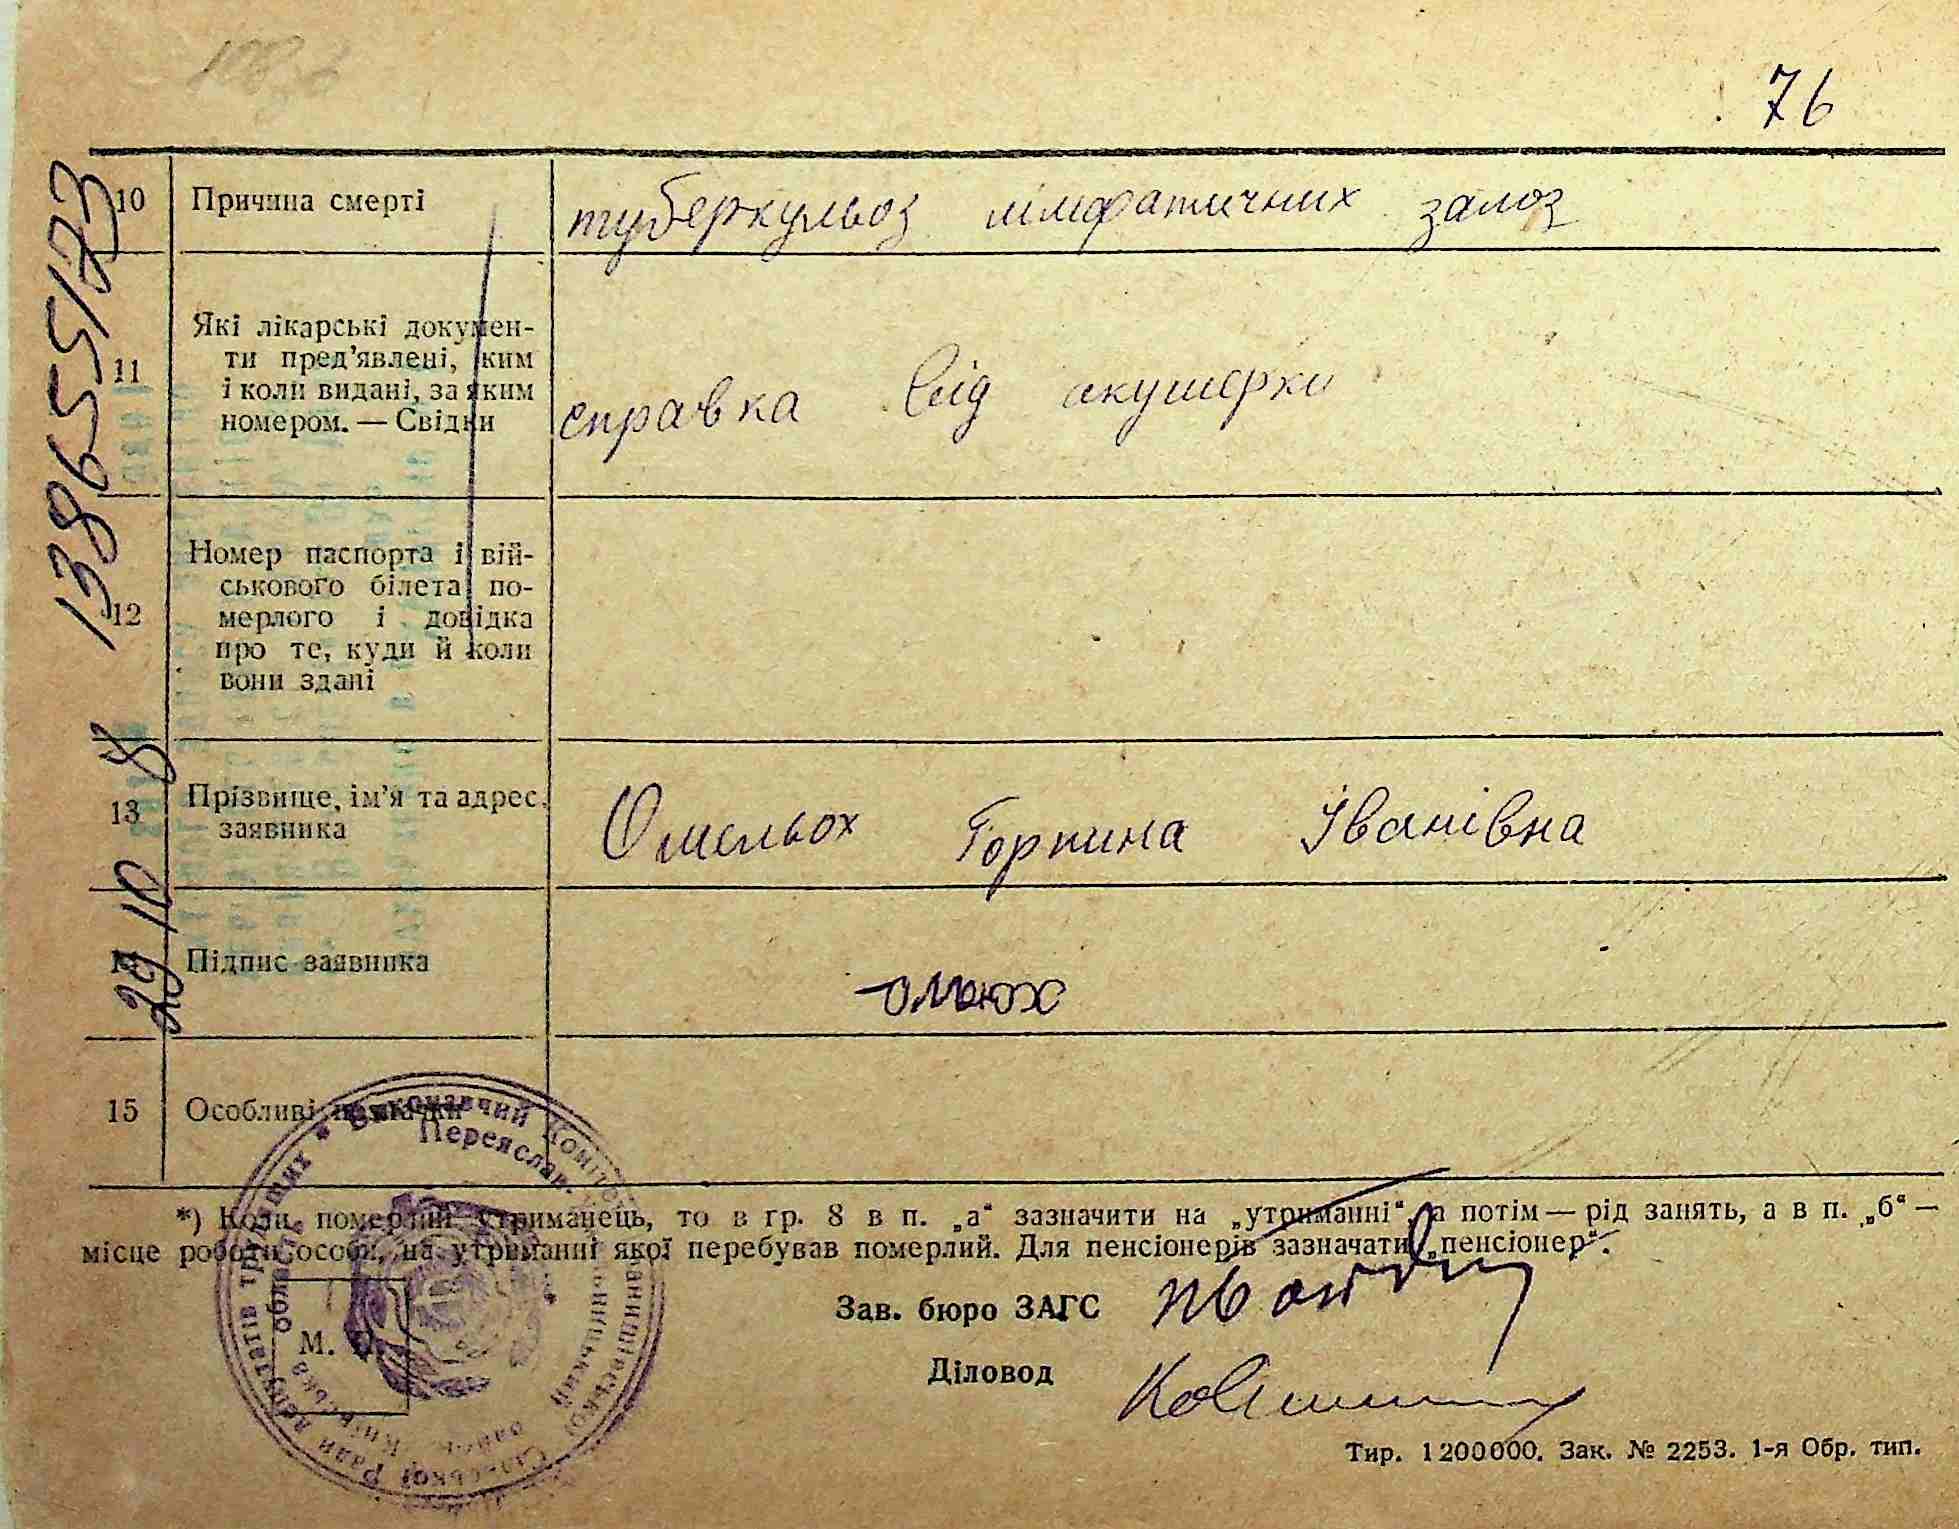 76
10 Причина смерті туберкульоз лімфатичних залоз
11 Які лікарські докумен-
ти пред'явлені, ким
і коли видані, за яким
номером. — Свідки
справка від акушерки
12 Номер паспорта і вій-
ськового білета по-
мерлого і довідка
про те, куди й коли
вони здані
13 Прізвище, ім'я та адрес.
заявника
Омельох Горпина Іванівна
14 Підпис заявника
15 Особливі
*) Коли померлий утриманець, то в гр. 8 в п. „а“ зазначити на „утриманні“, а потім — рід занять, а в п. „б“ —
місце роботи особи, на утриманні якої перебував померлий. Для пенсіонерів зазначати „пенсіонер“.
Зав. бюро ЗАГС
Діловод
М. П.
Виконавчий Коміте
Сільської Ради депутатів трудящих
Переяслав.
Київська область
Тир. 1200000. Зак. № 2253. 1-я Обр. тип.
138655173
29 10 8